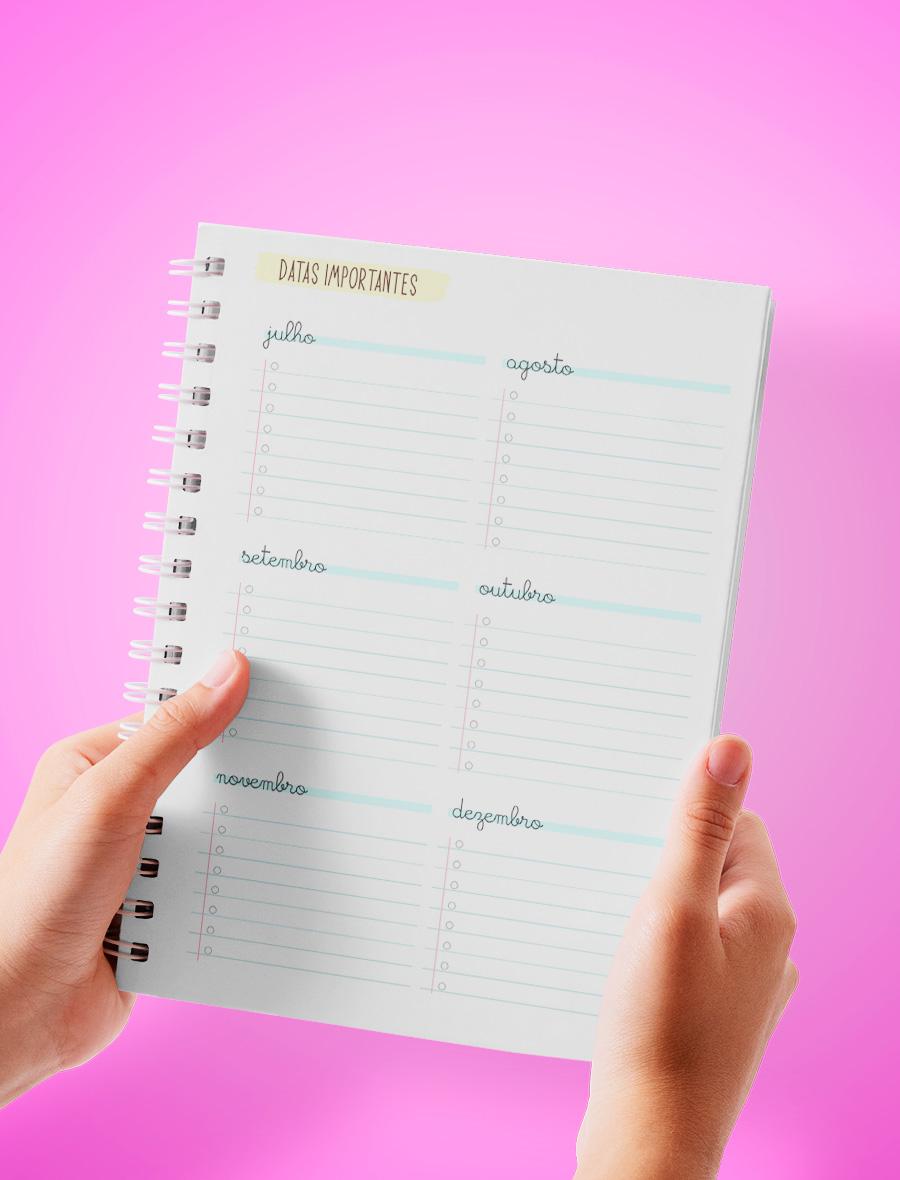 DATAS IMPORTANTES
julho
agosto
setembro
outubro
novembro
dezembro